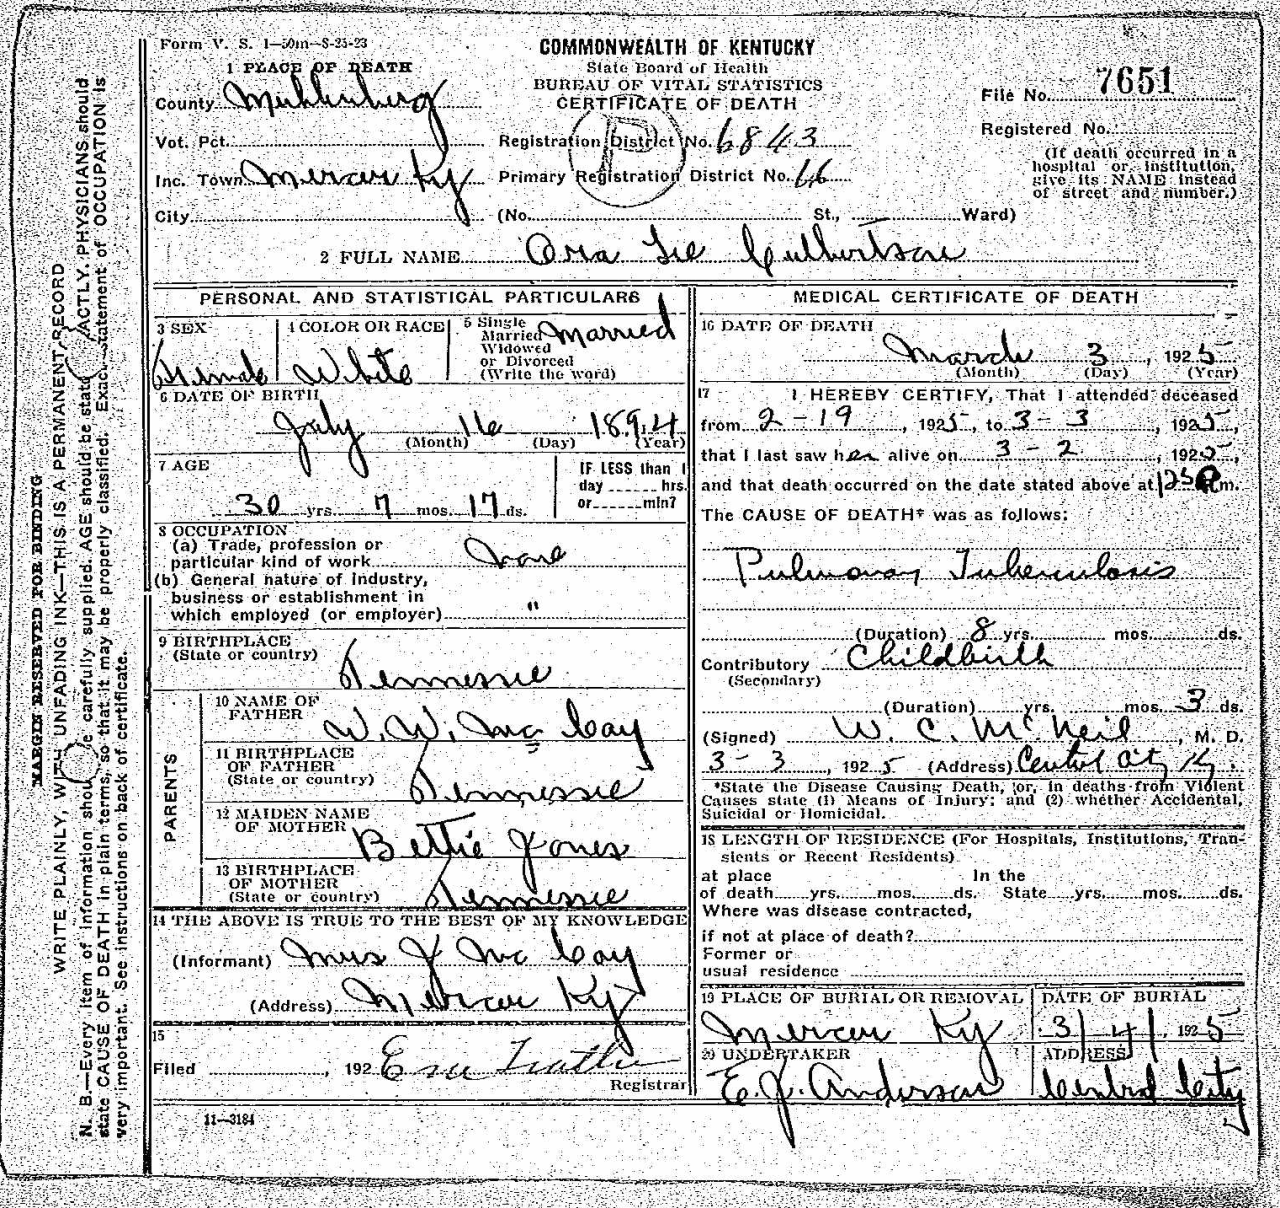 Form V. S. 1—50m—8-25-23
COMMONWEALTH OF KENTUCKY
State Board of Health
BUREAU OF VITAL STATISTICS
CERTIFICATE OF DEATH
File No. 7651
Registered No.
(If death occurred in a
hospital or institution,
give its NAME instead
of street and number.)
1 PLACE OF DEATH
County Muhlenberg
Vot. Pct.
Registration District No. 6843
Inc. Town Mercer Ky
Primary Registration District No. 66
City (No. St., Ward)
P
2 FULL NAME Ora Lee Culbertson
PERSONAL AND STATISTICAL PARTICULARS
3 SEX
Female
4 COLOR OR RACE
White
5 Single
Married
Widowed
or Divorced
(Write the word)
Married
6 DATE OF BIRTH
July 16 1894
(Month) (Day) (Year)
7 AGE
30 yrs. 7 mos. 17 ds.
IF LESS than 1
day ...... hrs.
or ...... min?
8 OCCUPATION
(a) Trade, profession or
particular kind of work None
(b) General nature of industry,
business or establishment in
which employed (or employer) "
9 BIRTHPLACE
(State or country)
Tennessee
PARENTS
10 NAME OF
FATHER
W. W. McCay
11 BIRTHPLACE
OF FATHER
(State or country)
Tennessee
12 MAIDEN NAME
OF MOTHER
Bettie Jones
13 BIRTHPLACE
OF MOTHER
(State or country)
Tennessee
14 THE ABOVE IS TRUE TO THE BEST OF MY KNOWLEDGE
(Informant) Mrs J McCay
(Address) Mercer Ky
15
Filed , 192
Registrar
11—3184
MEDICAL CERTIFICATE OF DEATH
16 DATE OF DEATH
March 3, 1925
(Month) (Day) (Year)
17 I HEREBY CERTIFY, That I attended deceased
from 2-19, 1925, to 3-3 1925,
that I last saw her alive on 3-2, 1925,
and that death occurred on the date stated above at P m.
The CAUSE OF DEATH* was as follows:
Pulmonary Tuberculosis
(Duration) 8 yrs. mos. ds.
Contributory Childbirth
(Secondary)
(Duration) yrs. mos. 3 ds.
(Signed) W. C. McNeil, M. D.
3-3, 1925 (Address) Central City Ky.
*State the Disease Causing Death, or, in deaths from Violent
Causes state (1) Means of Injury; and (2) whether Accidental,
Suicidal or Homicidal.
18 LENGTH OF RESIDENCE (For Hospitals, Institutions, Tran-
sients or Recent Residents)
at place In the
of death yrs. mos. ds. State yrs. mos. ds.
Where was disease contracted,
if not at place of death?
Former or
usual residence
19 PLACE OF BURIAL OR REMOVAL
Mercer Ky
DATE OF BURIAL
3/4/1925
20 UNDERTAKER
E. J. Anderson
ADDRESS
Central City
MARGIN RESERVED FOR BINDING
WRITE PLAINLY, WITH UNFADING INK—THIS IS A PERMANENT RECORD
N. B.—Every item of information should be carefully supplied. AGE should be stated EXACTLY. PHYSICIANS should
state CAUSE OF DEATH in plain terms, so that it may be properly classified. Exact statement of OCCUPATION is
very important. See instructions on back of certificate.